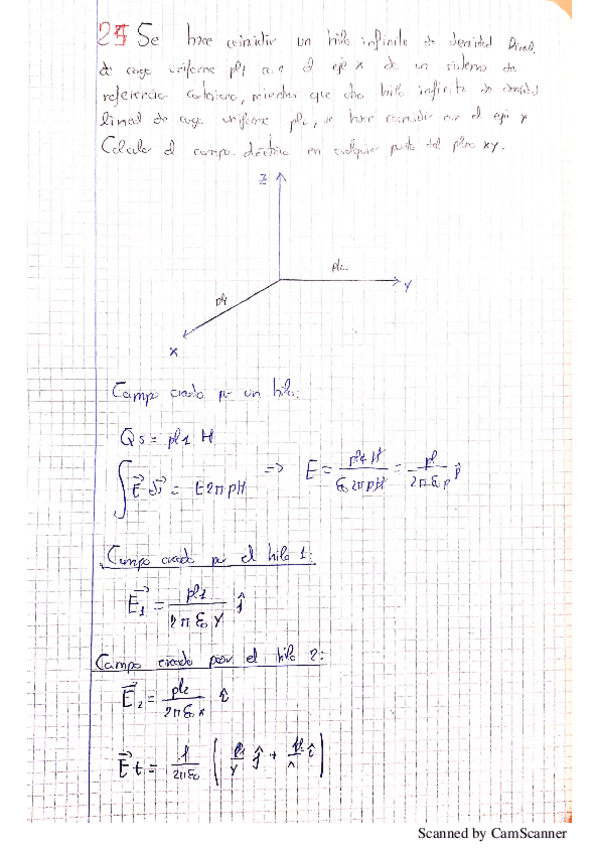 25 Se hace coincidir un hilo infinito de densidad lineal
de carga uniforme ρl1 con el eje x de un sistema de
referencia cartesiano, mientras que otro hilo infinito de densidad
lineal de carga uniforme ρl2, se hace coincidir con el eje y
Calcular el campo eléctrico en cualquier punto del plano xy.
Z
ρl2
Y
ρl1
X
Campo creado por un hilo:
Qs = ρl1 H
∫ E⃗ dS⃗ = E2πρH => E = ρl1 H / ε₀ 2πρH = ρl / 2π ε₀ ρ ρ̂
Campo creado por el hilo 1:
E⃗₁ = ρl1 / 2π ε₀ y ĵ
Campo creado por el hilo 2:
E⃗₂ = ρl2 / 2π ε₀ x î
E⃗t = 1 / 2πε₀ ( ρl1 / y ĵ + ρl2 / x î )
Scanned by CamScanner